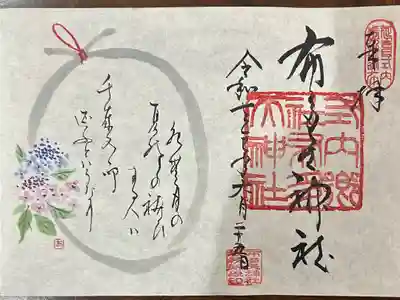 奉拝
布多天神社
式内郷
社布多
天神社
令和七年六月二十五日
水無月の
夏越の祓ひ
する人は
千年の命
延ぶといふなり